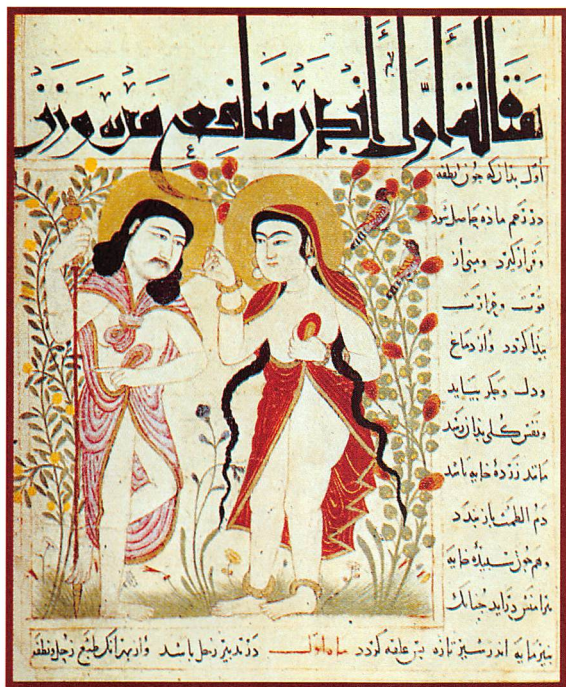 مقالة اول اندر منافع مرد وزن
اول بذانکه جون نطفه
در رحم ماده حاصل شود
و قرار کیرد و منی از
قوت و حرارت
بیذا کردد و از دماغ
ودل وجکر ساید
ونفس کلی بذان رسد
مانند زردهٔ خایه باشد
دم الطمث باز بندد
وهم جون سبیذهٔ خایه
بیرامنش دراید جنانک
بنیر مایه اندر شیر تازه بس علقه کردد ماه اول در تدبیر زحل باشد واز بهر انک طبع زحل ونطفه